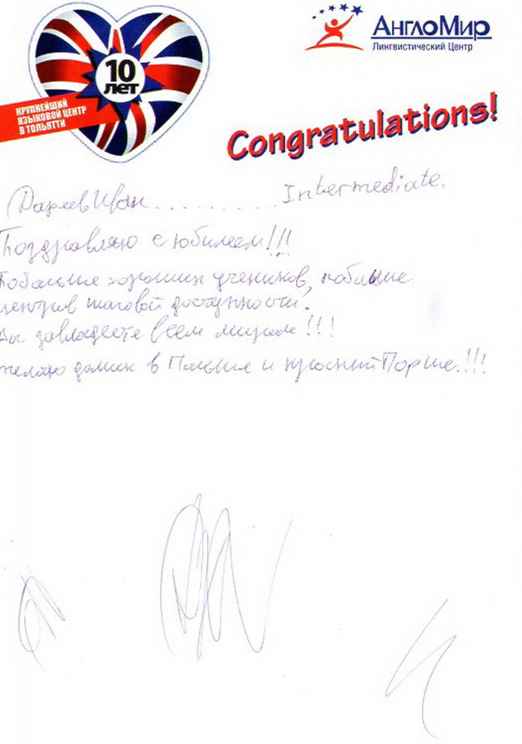 10
ЛЕТ
КРУПНЕЙШИЙ
ЯЗЫКОВОЙ ЦЕНТР
В ТОЛЬЯТТИ
АнглоМир
Лингвистический Центр
Congratulations!
Иван .......... Intermediate.
Поздравляю с юбилеем!!!
Побольше хороших учеников, побольше
центров шаговой доступности.
завладеете всем миром!!!
желаю домик в и красный Порше.!!!